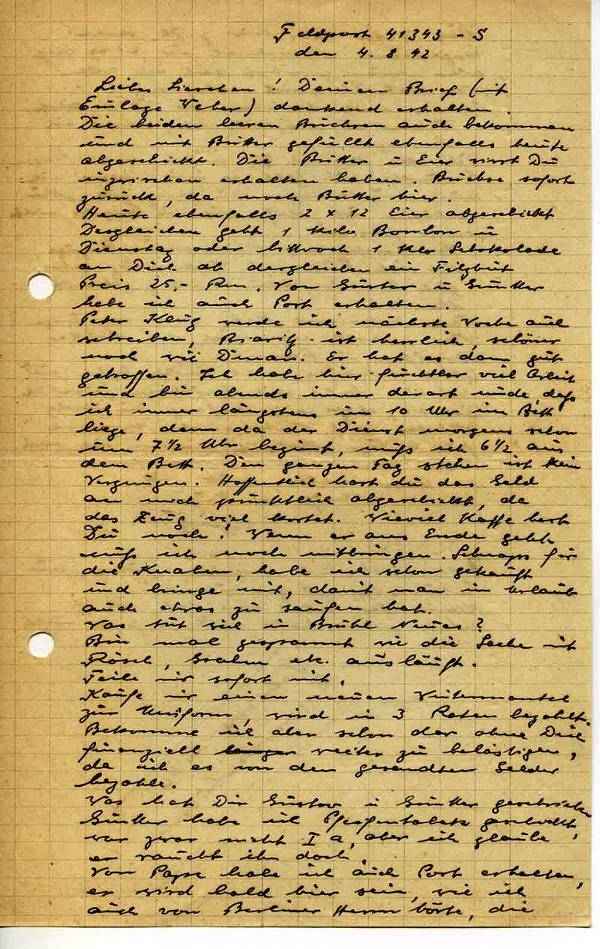 Feldpost 41343 - S
den 4.8.42
Liebes Lieschen! Deinen Brief (mit
Einlage Weber) dankend erhalten.
Die beiden leeren Büchsen auch bekommen
und mit Butter gefüllt ebenfalls heute
abgeschickt. Die Butter u Eier wirst Du
inzwischen erhalten haben. Büchse sofort
zurück, da noch Butter hier.
Heute ebenfalls 2 x 12 Eier abgeschickt
Desgleichen geht 1 Kilo Bonbon u
Dienstag oder Mittwoch 1 Kilo Schokolade
an Dich ab desgleichen ein Filzhut
Preis 25,- Rm. Von Günter
habe ich auch Post erhalten.
Peter Klug werde ich nächste Woche auch
schreiben, Biaritz ist herrlich, schöner
noch wie Dinan. Er hat es dann gut
getroffen. Ich habe hier furchtbar viel Arbeit
und bin abends immer derart müde, daß
ich immer längstens um 10 Uhr im Bett
liege, denn da der Dienst morgens schon
um 7½ Uhr beginnt, muß ich 6½ aus
dem Bett. Den ganzen Tag stehen ist kein
Vergnügen. Hoffentlich hast du das Geld
an mich pünktlich abgeschickt, da
das Zeug viel kostet. Wieviel Kaffe hast
Du noch? Wenn er aus Ende geht
muß ich noch mitbringen. Schnaps für
die Knaben, habe ich schon gekauft
und bringe mit, damit man im Urlaub
auch etwas zu saufen hat.
Was tut sich in Brühl Neues?
Bin mal gespannt wie die Sache mit
Rösch, etc. ausläuft.
Teile mir sofort mit.
Kaufe mir einen neuen Wintermantel
zur Uniform, wird in 3 Raten bezahlt.
Bekomme ich aber schon dar ohne Dich
finanziell weiter zu belästigen,
da ich es von den gesandten Gelder
bezahle.
Was hat Dir Gustav u Günter geschrieben
Günter habe ich Pfeifentabak geschickt,
war zwar nicht I a, aber ich glaube,
er raucht ihn doch.
Von Pape habe ich auch Post erhalten,
er wird bald hier sein, wie ich
auch von Berliner Herrn hörte, die